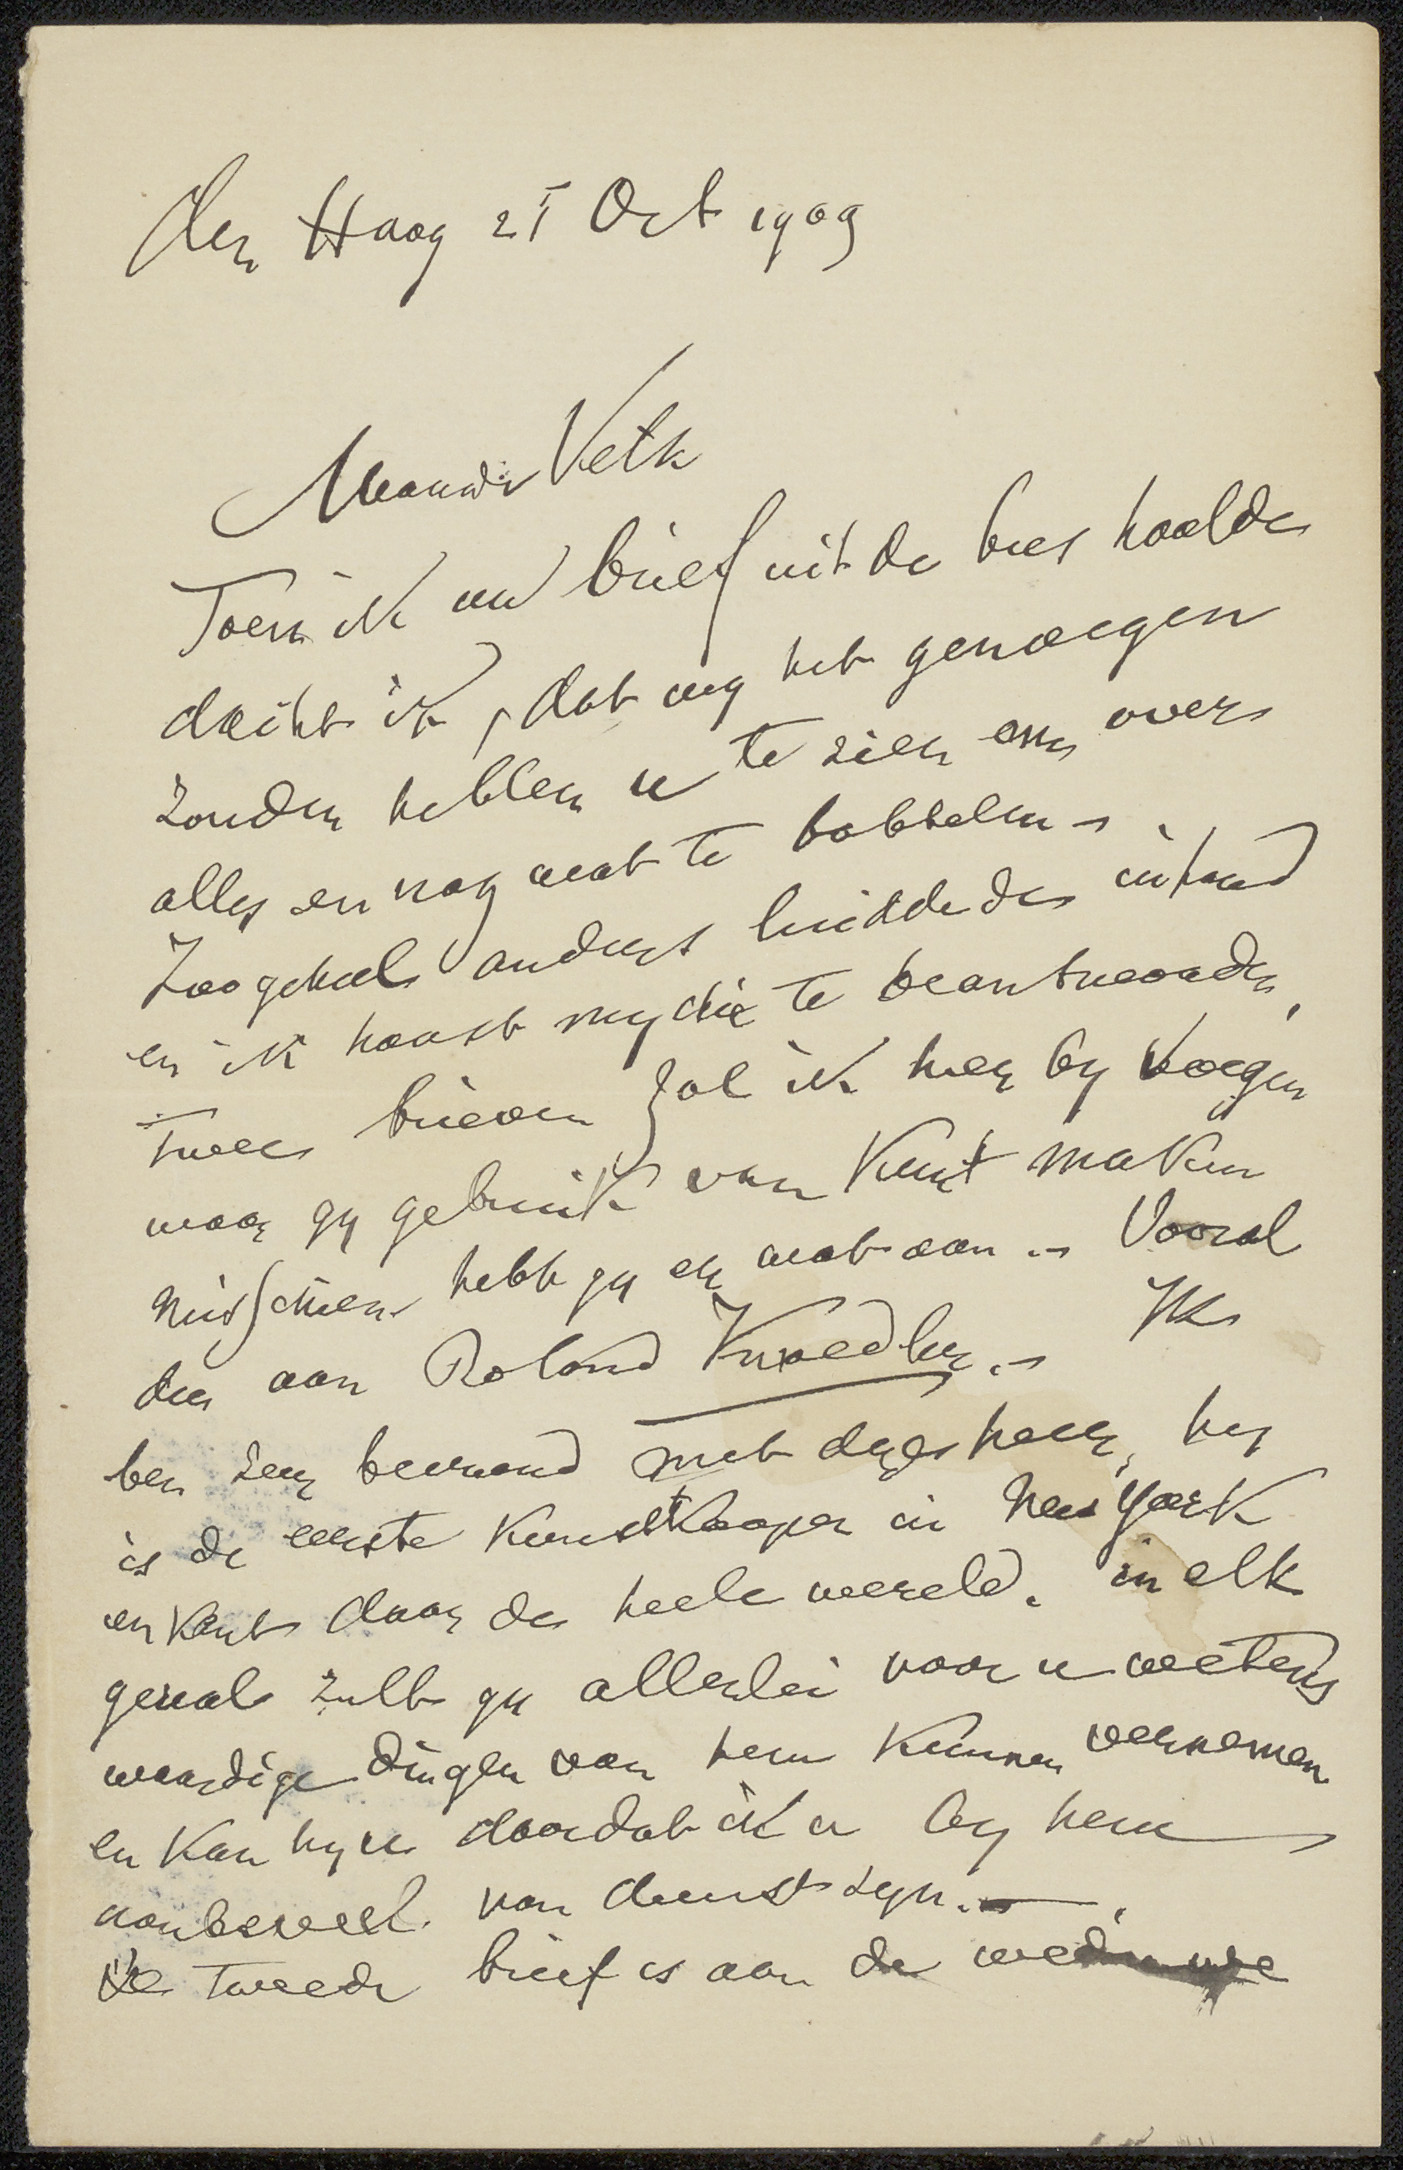 den Haag 21 Oct 1909
Waarde Veth
Toen ik uw brief uit de bus haalde
dacht ik, dat wy het genoegen
zouden hebben u te zien om over
alles en nog wat te babbelen -
Zoo geheel anders luidde de inhoud
en ik haast my die te beantwoorden,
twee brieven zal ik hier by voegen
waar gy gebruik van kunt maken
misschien hebt gy er wat aan .- Vooral
die aan Roland Knoedler .- Ik
ben zeer bevriend met deze heer, hy
is de eerste Kunstkooper in New York
en kent daar de heele wereld. in elk
geval zult gy allerlei voor u wetens
waardige dingen van hem kunnen vernemen
en kan hy u doordat ik u by hem
aanbeveel van dienst zyn. -
De tweede brief is aan de weduwe